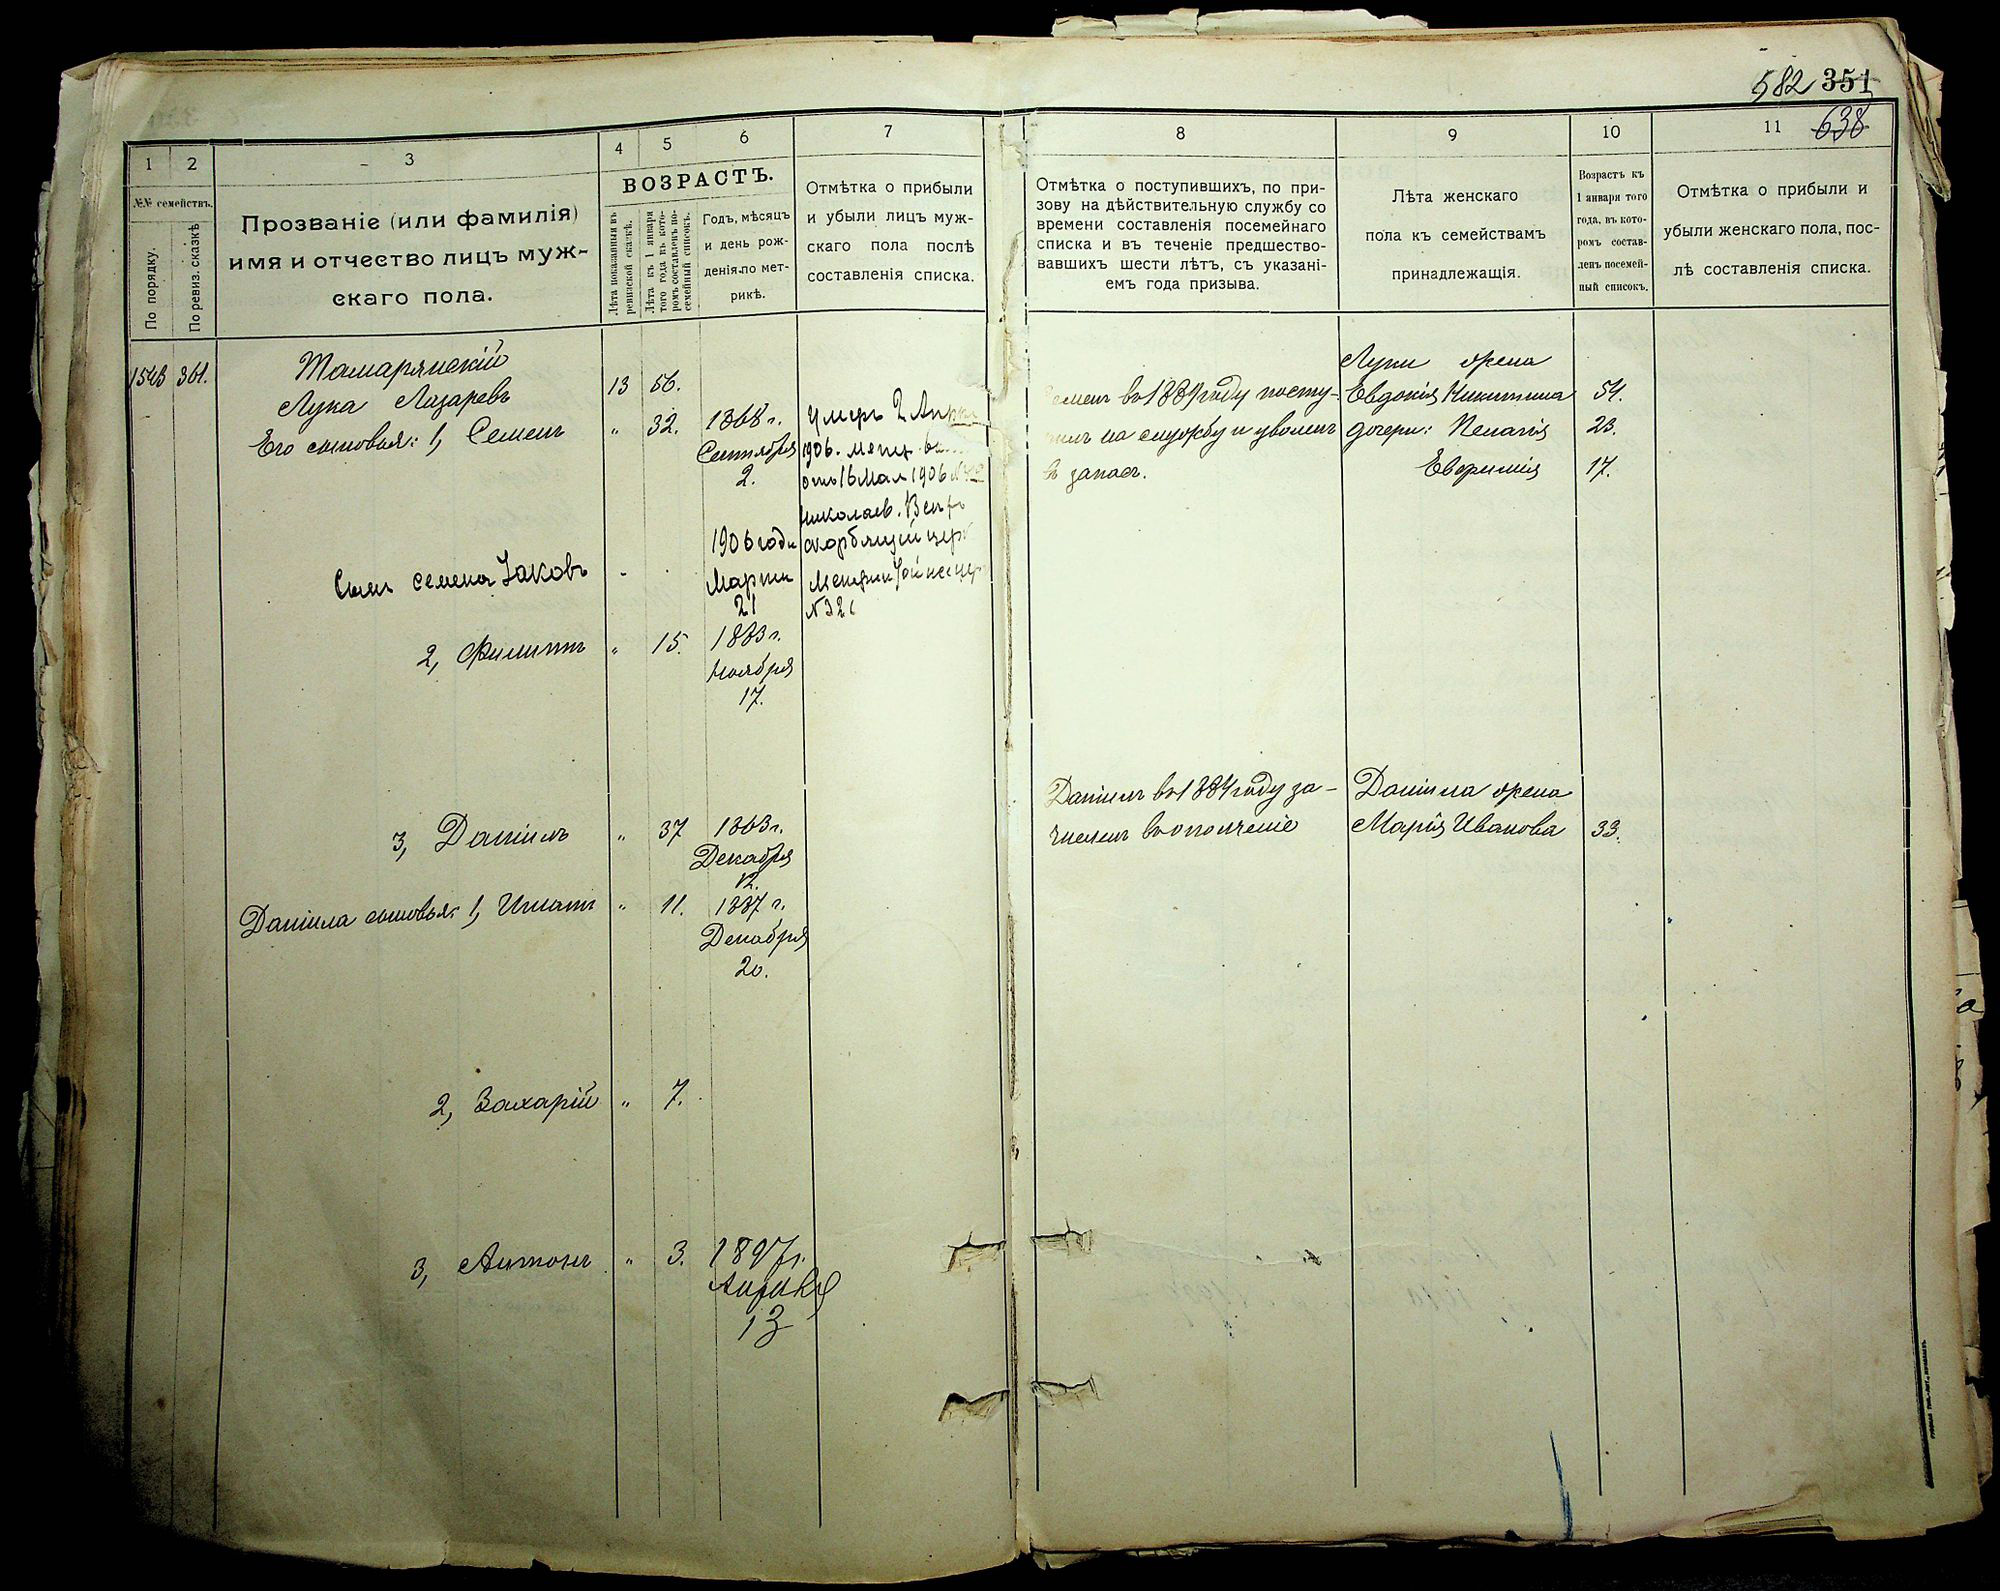 582 351
638
1
2
3
4
5
6
7
8
9
10
11
№№ семействъ.
По порядку.
По ревиз. сказкѣ
Прозваніе (или фамилія)
имя и отчество лицъ муж-
скаго пола.
ВОЗРАСТЪ.
Лѣта показанныя въ
ревизской сказкѣ.
Лѣта къ 1 января
того года въ кото-
ромъ составленъ по-
семейный списокъ.
Годъ, мѣсяцъ
и день рож-
денія по мет-
рикѣ.
Отмѣтка о прибыли
и убыли лицъ муж-
скаго пола послѣ
составленія списка.
Отмѣтка о поступившихъ, по при-
зову на дѣйствительную службу со
времени составленія посемейнаго
списка и въ теченіе предшество-
вавшихъ шести лѣтъ, съ указані-
емъ года призыва.
Лѣта женскаго
пола къ семействамъ
принадлежащія.
Возрастъ къ
1 января того
года, въ кото-
ромъ состав-
ленъ посемей-
ный списокъ.
Отмѣтка о прибыли и
убыли женскаго пола, пос-
лѣ составленія списка.
1543 361.
Тамарянскій
Лука Лазаревъ 13 56.
Его сыновья: 1, Семенъ " 32. 1868 г.
Сентября
2.
Умеръ 2
1906. метр.
отъ 16 Мая 1906
Николаев.
скорбящей
Сынъ Семена Іаковъ
1906 года
Марта
21
2, Филиппъ " 15. 1883 г.
Ноября
17.
3, Даніилъ " 37 1863 г.
Декабря
12.
Даніила сыновья: 1, Игнатъ " 11. 1887 г.
Декабря
20.
2, Захарій " 7.
3, Антонъ " 3. 1897 г.
Апреля
13
Семенъ въ 1889 году посту-
пилъ на службу и уволенъ
въ запасъ.
Даніилъ въ 1884 году за-
численъ въ ополченіе
Луки жена
Евдокія Никитина 54.
дочери: Пелагія 23.
Евфимія 17.
Даніила жена
Марія Иванова 33.